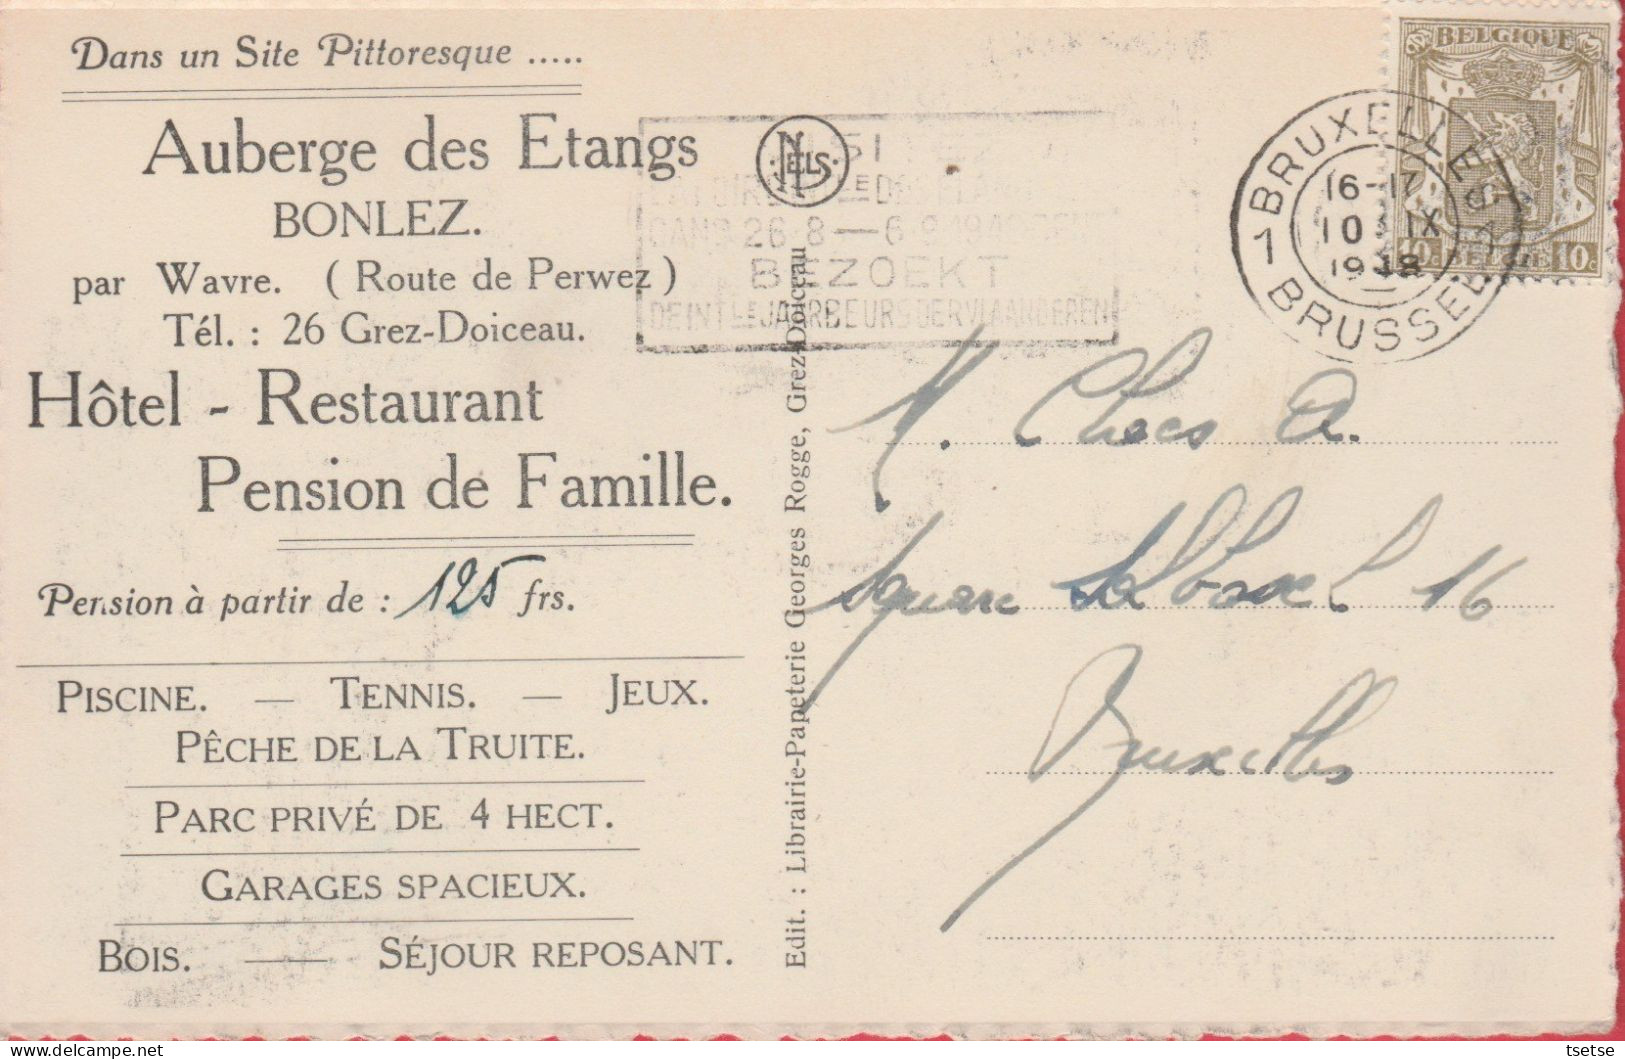 Dans un Site Pittoresque .....
Auberge des Etangs
BONLEZ.
par Wavre. ( Route de Perwez )
Tél. : 26 Grez-Doiceau.
Hôtel - Restaurant
Pension de Famille.
Pension à partir de : 125 frs.
PISCINE. — TENNIS. — JEUX.
PÊCHE DE LA TRUITE.
PARC PRIVÉ DE 4 HECT.
GARAGES SPACIEUX.
BOIS. — SÉJOUR REPOSANT.
Edit. : Librairie-Papeterie Georges Rogge, Grez-Doiceau
NELS
GAND 26-8 — 6-9 194
BEZOEKT
DE INTLE JAARBEURS DER VLAANDEREN
BELGIQUE
10c 10c
BELGIE
BRUXELLES
16-17
10 IX
1948
1 BRUSSEL 1
M. Claes A.
Square 16
Bruxelles
tsetse